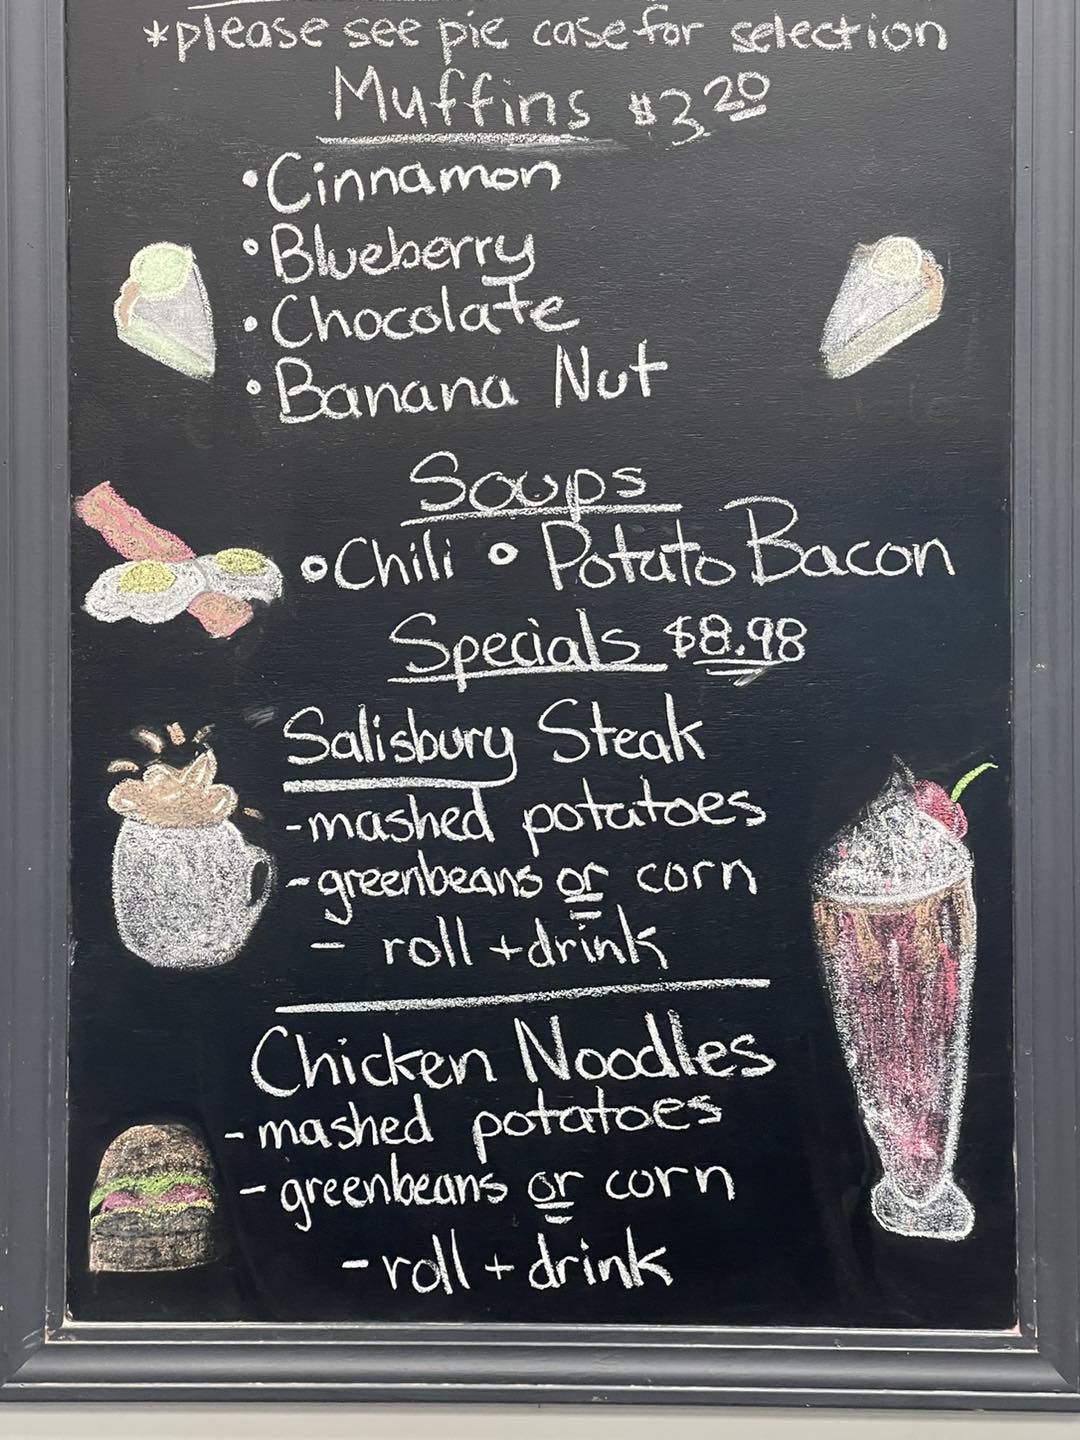 *please see pie case for selection
Muffins $3.20
•Cinnamon
•Blueberry
•Chocolate
•Banana Nut
Soups
•Chili • Potato Bacon
Specials $8.98
Salisbury Steak
-mashed potatoes
-greenbeans or corn
- roll +drink
Chicken Noodles
-mashed potatoes
-greenbeans or corn
-roll + drink